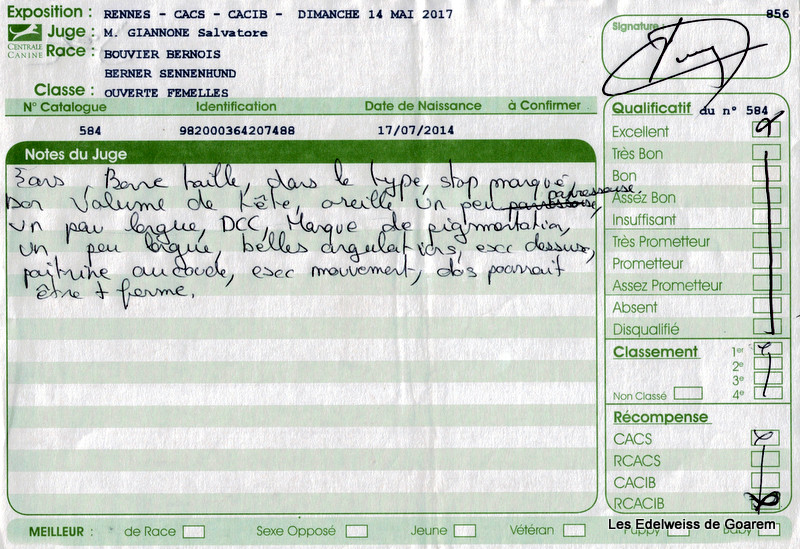 Exposition : RENNES - CACS - CACIB - DIMANCHE 14 MAI 2017
856
CENTRALE CANINE
Juge : M. GIANNONE Salvatore
Signature :
Race : BOUVIER BERNOIS
BERNER SENNENHUND
Classe : OUVERTE FEMELLES
N° Catalogue Identification Date de Naissance à Confirmer
584 982000364207488 17/07/2014
Notes du Juge
3 ans, Bonne taille, dans le type, stop marqué
bon volume de tête, oreille un peu paresseuse,
un peu longue, DCC, Manque de pigmentation,
un peu longue, belles angulations, exc dessus,
poitrine au coude, exc mouvement, dos pourrait
être + ferme.
Qualificatif du n° 584
Excellent
Très Bon
Bon
Assez Bon
Insuffisant
Très Prometteur
Prometteur
Assez Prometteur
Absent
Disqualifié
Classement 1er
2e
3e
Non Classé 4e
Récompense
CACS
RCACS
CACIB
RCACIB
MEILLEUR : de Race Sexe Opposé Jeune Vétéran Puppy Baby
Les Edelweiss de Goarem